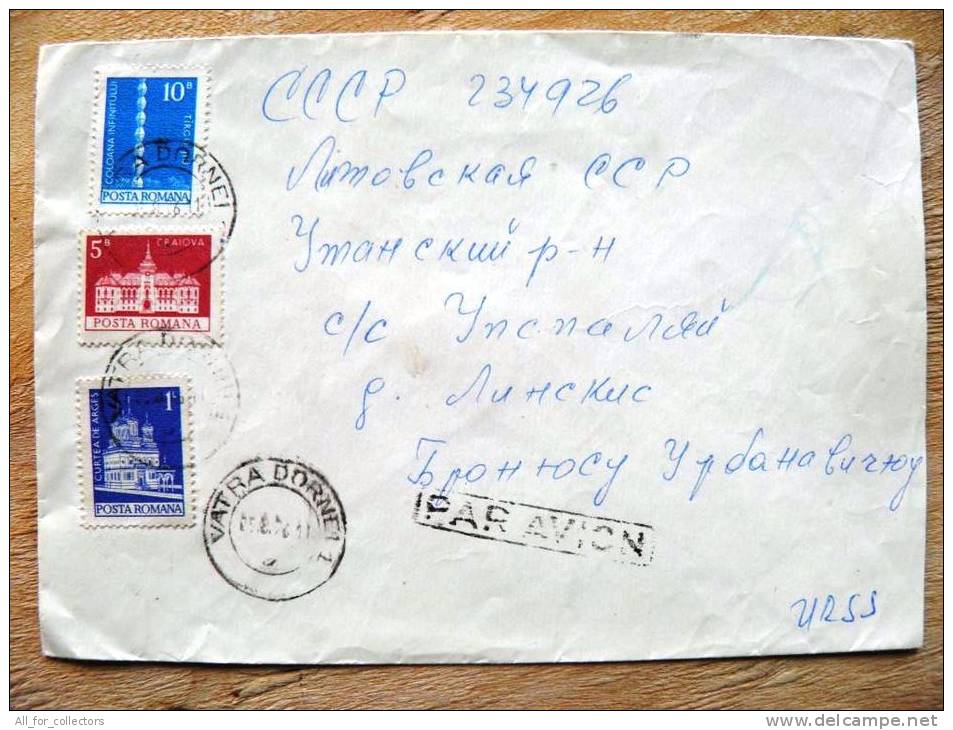 СССР 234926
Литовская ССР
Утанский р-н
с/с Успаляй
д. Линскис
Бронюсу Урбанавичюу
PAR AVION
URSS
10 B
COLOANA INFINITULUI
POSTA ROMANA
5 B
CRAIOVA
POSTA ROMANA
1 L
CURTEA DE ARGEȘ
POSTA ROMANA
VATRA DORNEI
VATRA DORNEI 1
All_for_collectors
www.delcampe.net